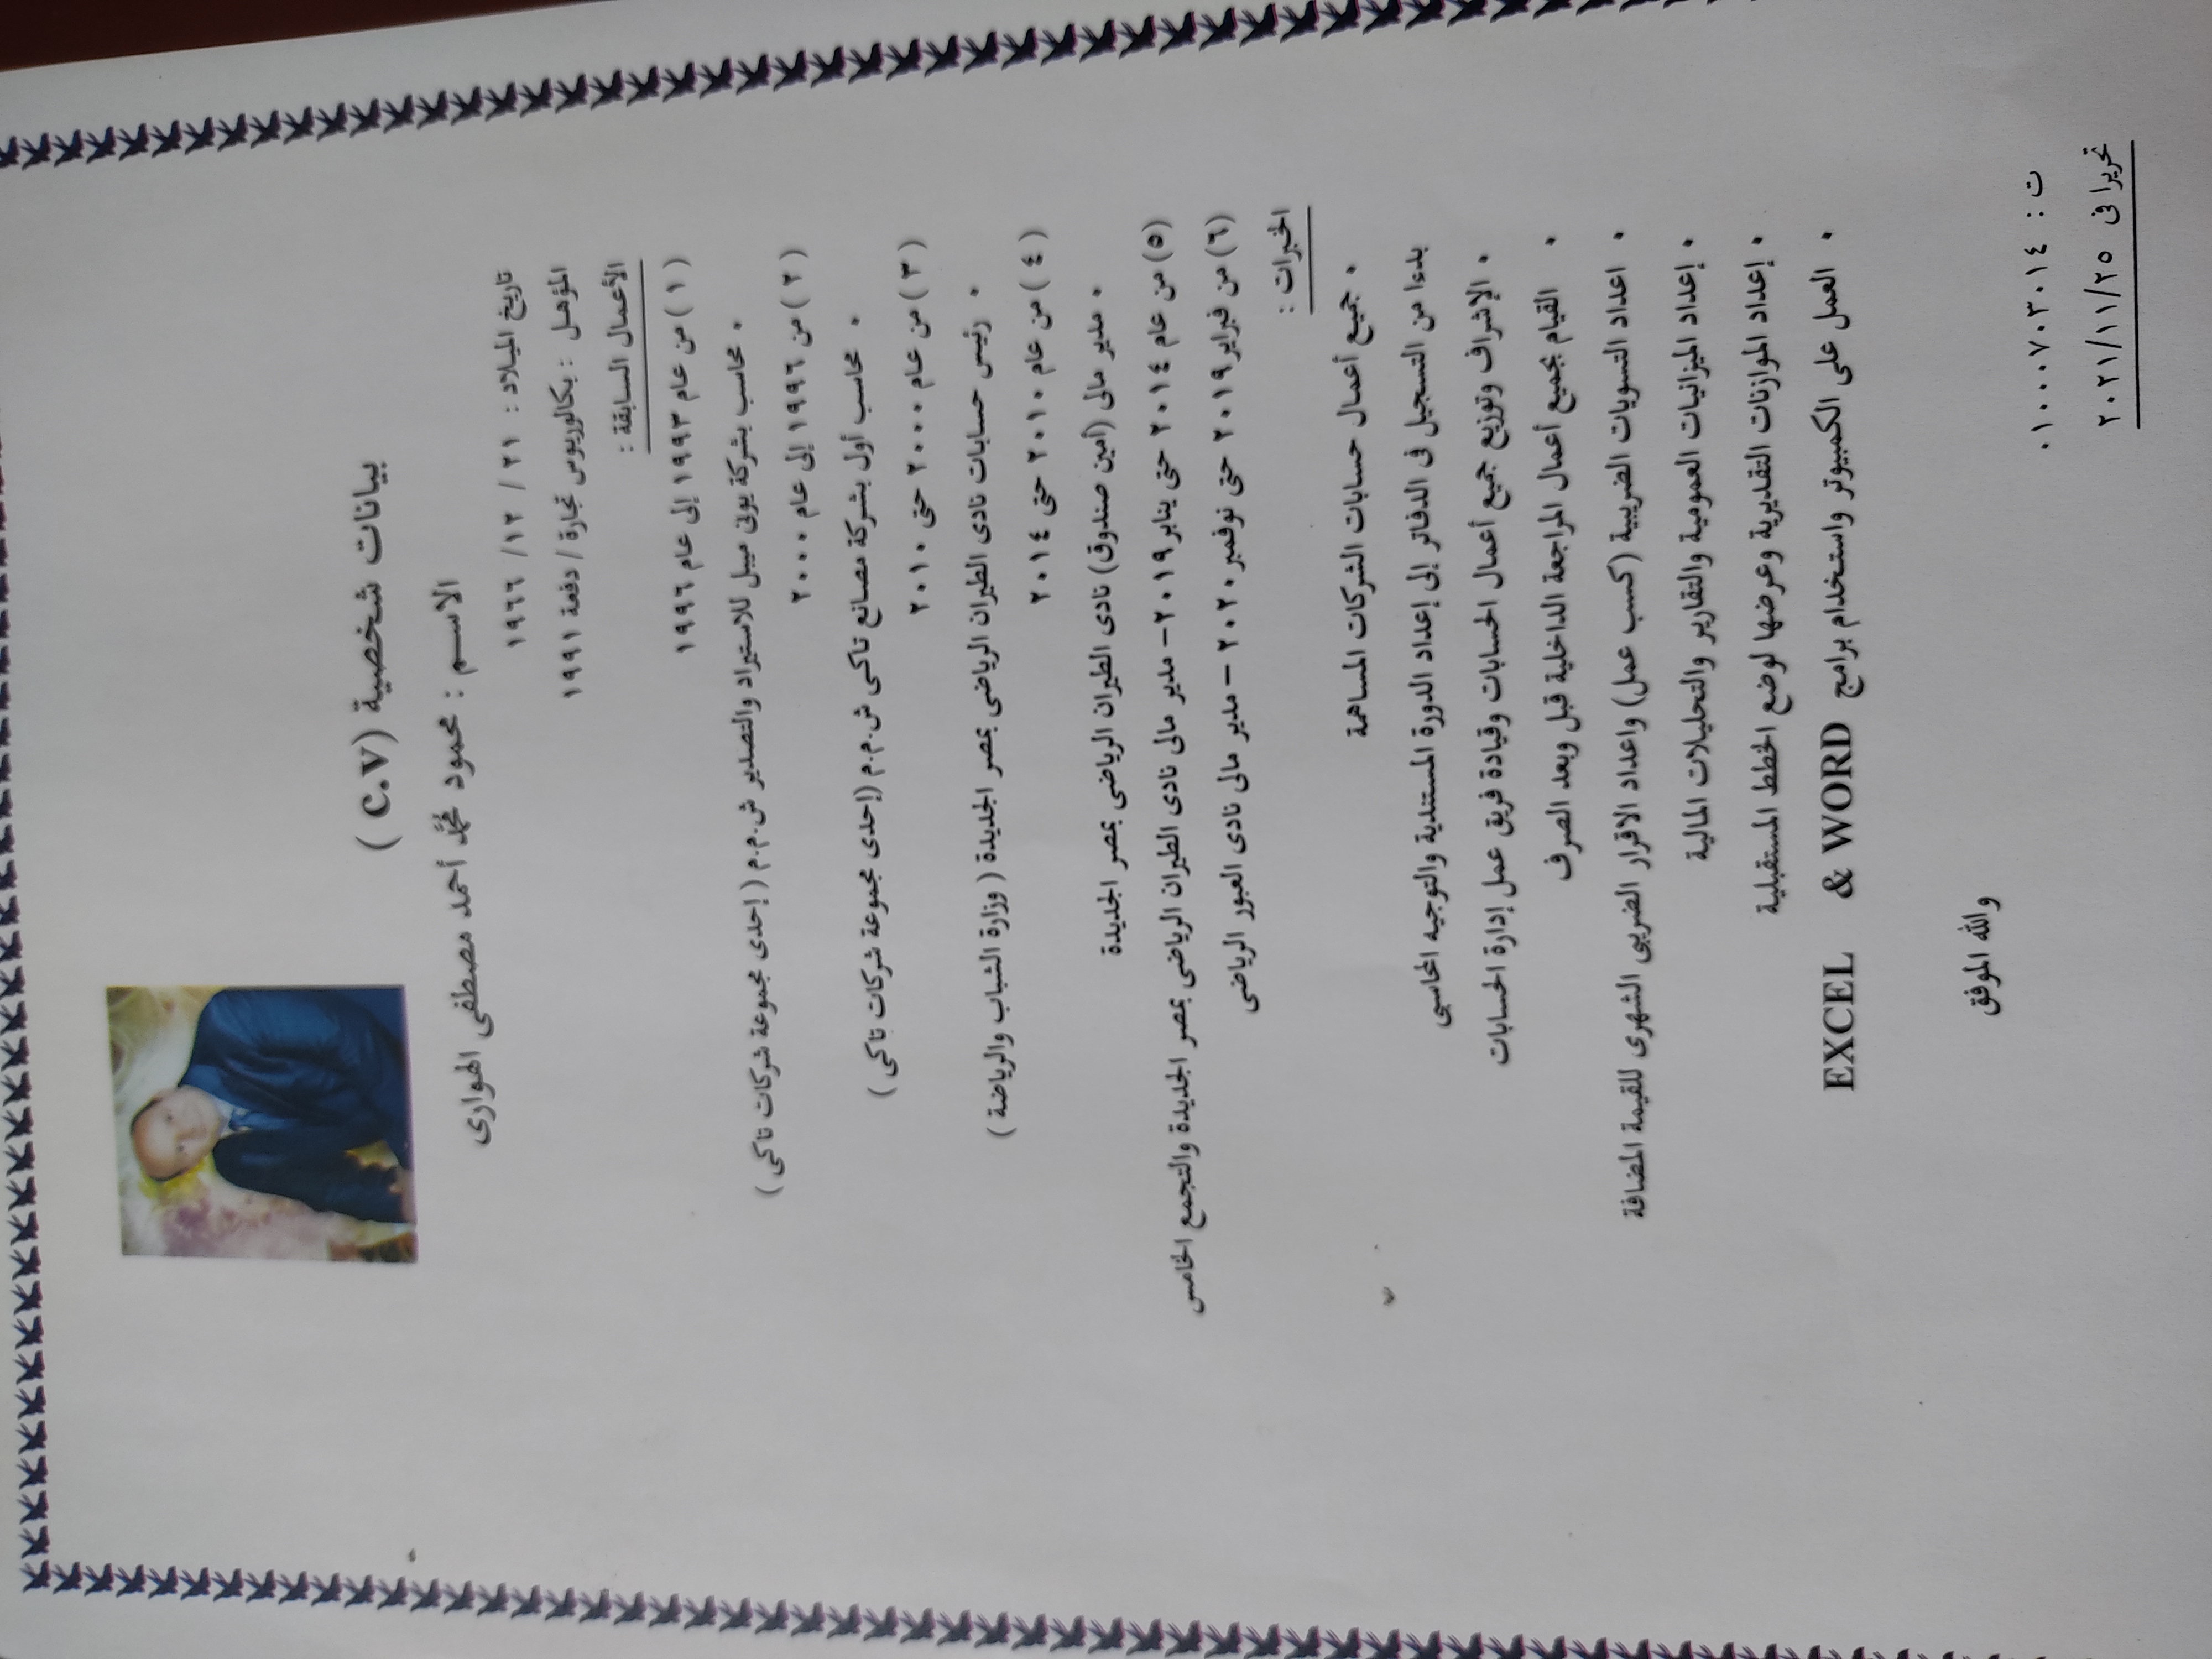 بيانات شخصية ( C.V )
الاسم : محمود محمد أحمد مصطفى الهوارى
تاريخ الميلاد : ٢١ / ١٢ / ١٩٦٦
المؤهل : بكالوريوس تجارة / دفعة ١٩٩١
الأعمال السابقة :
( ١ ) من عام ١٩٩٣ إلى عام ١٩٩٦
• محاسب بشركة يونى ميبل للاستيراد والتصدير ش.م.م ( إحدى مجموعة شركات تاكى )
( ٢ ) من ١٩٩٦ إلى عام ٢٠٠٠
• محاسب أول بشركة مصانع تاكى ش.م.م (إحدى مجموعة شركات تاكى )
( ٣ ) من عام ٢٠٠٠ حتى ٢٠١٠
• رئيس حسابات نادى الطيران الرياضى بمصر الجديدة ( وزارة الشباب والرياضة )
( ٤ ) من عام ٢٠١٠ حتى ٢٠١٤
• مدير مالى (أمين صندوق) نادى الطيران الرياضى بمصر الجديدة
(٥) من عام ٢٠١٤ حتى يناير ٢٠١٩- مدير مالى نادى الطيران الرياضى بمصر الجديدة والتجمع الخامس
(٦) من فبراير ٢٠١٩ حتى نوفمبر ٢٠٢٠ – مدير مالى نادى العبور الرياضى
الخبرات :
• جميع أعمال حسابات الشركات المساهمة
بدءا من التسجيل فى الدفاتر إلى إعداد الدورة المستندية والتوجيه المحاسبى
• الإشراف وتوزيع جميع أعمال الحسابات وقيادة فريق عمل إدارة الحسابات
• القيام بجميع أعمال المراجعة الداخلية قبل وبعد الصرف
• اعداد التسويات الضريبية (كسب عمل) واعداد الاقرار الضريبى الشهرى للقيمة المضافة
• إعداد الميزانيات العمومية والتقارير والتحليلات المالية
• إعداد الموازنات التقديرية وعرضها لوضع الخطط المستقبلية
• العمل على الكمبيوتر واستخدام برامج EXCEL & WORD
والله الموفق
ت : ٠١٠٠٠٧٠٣٠١٤
تحريرا فى ٢٠٢١/١١/٢٥